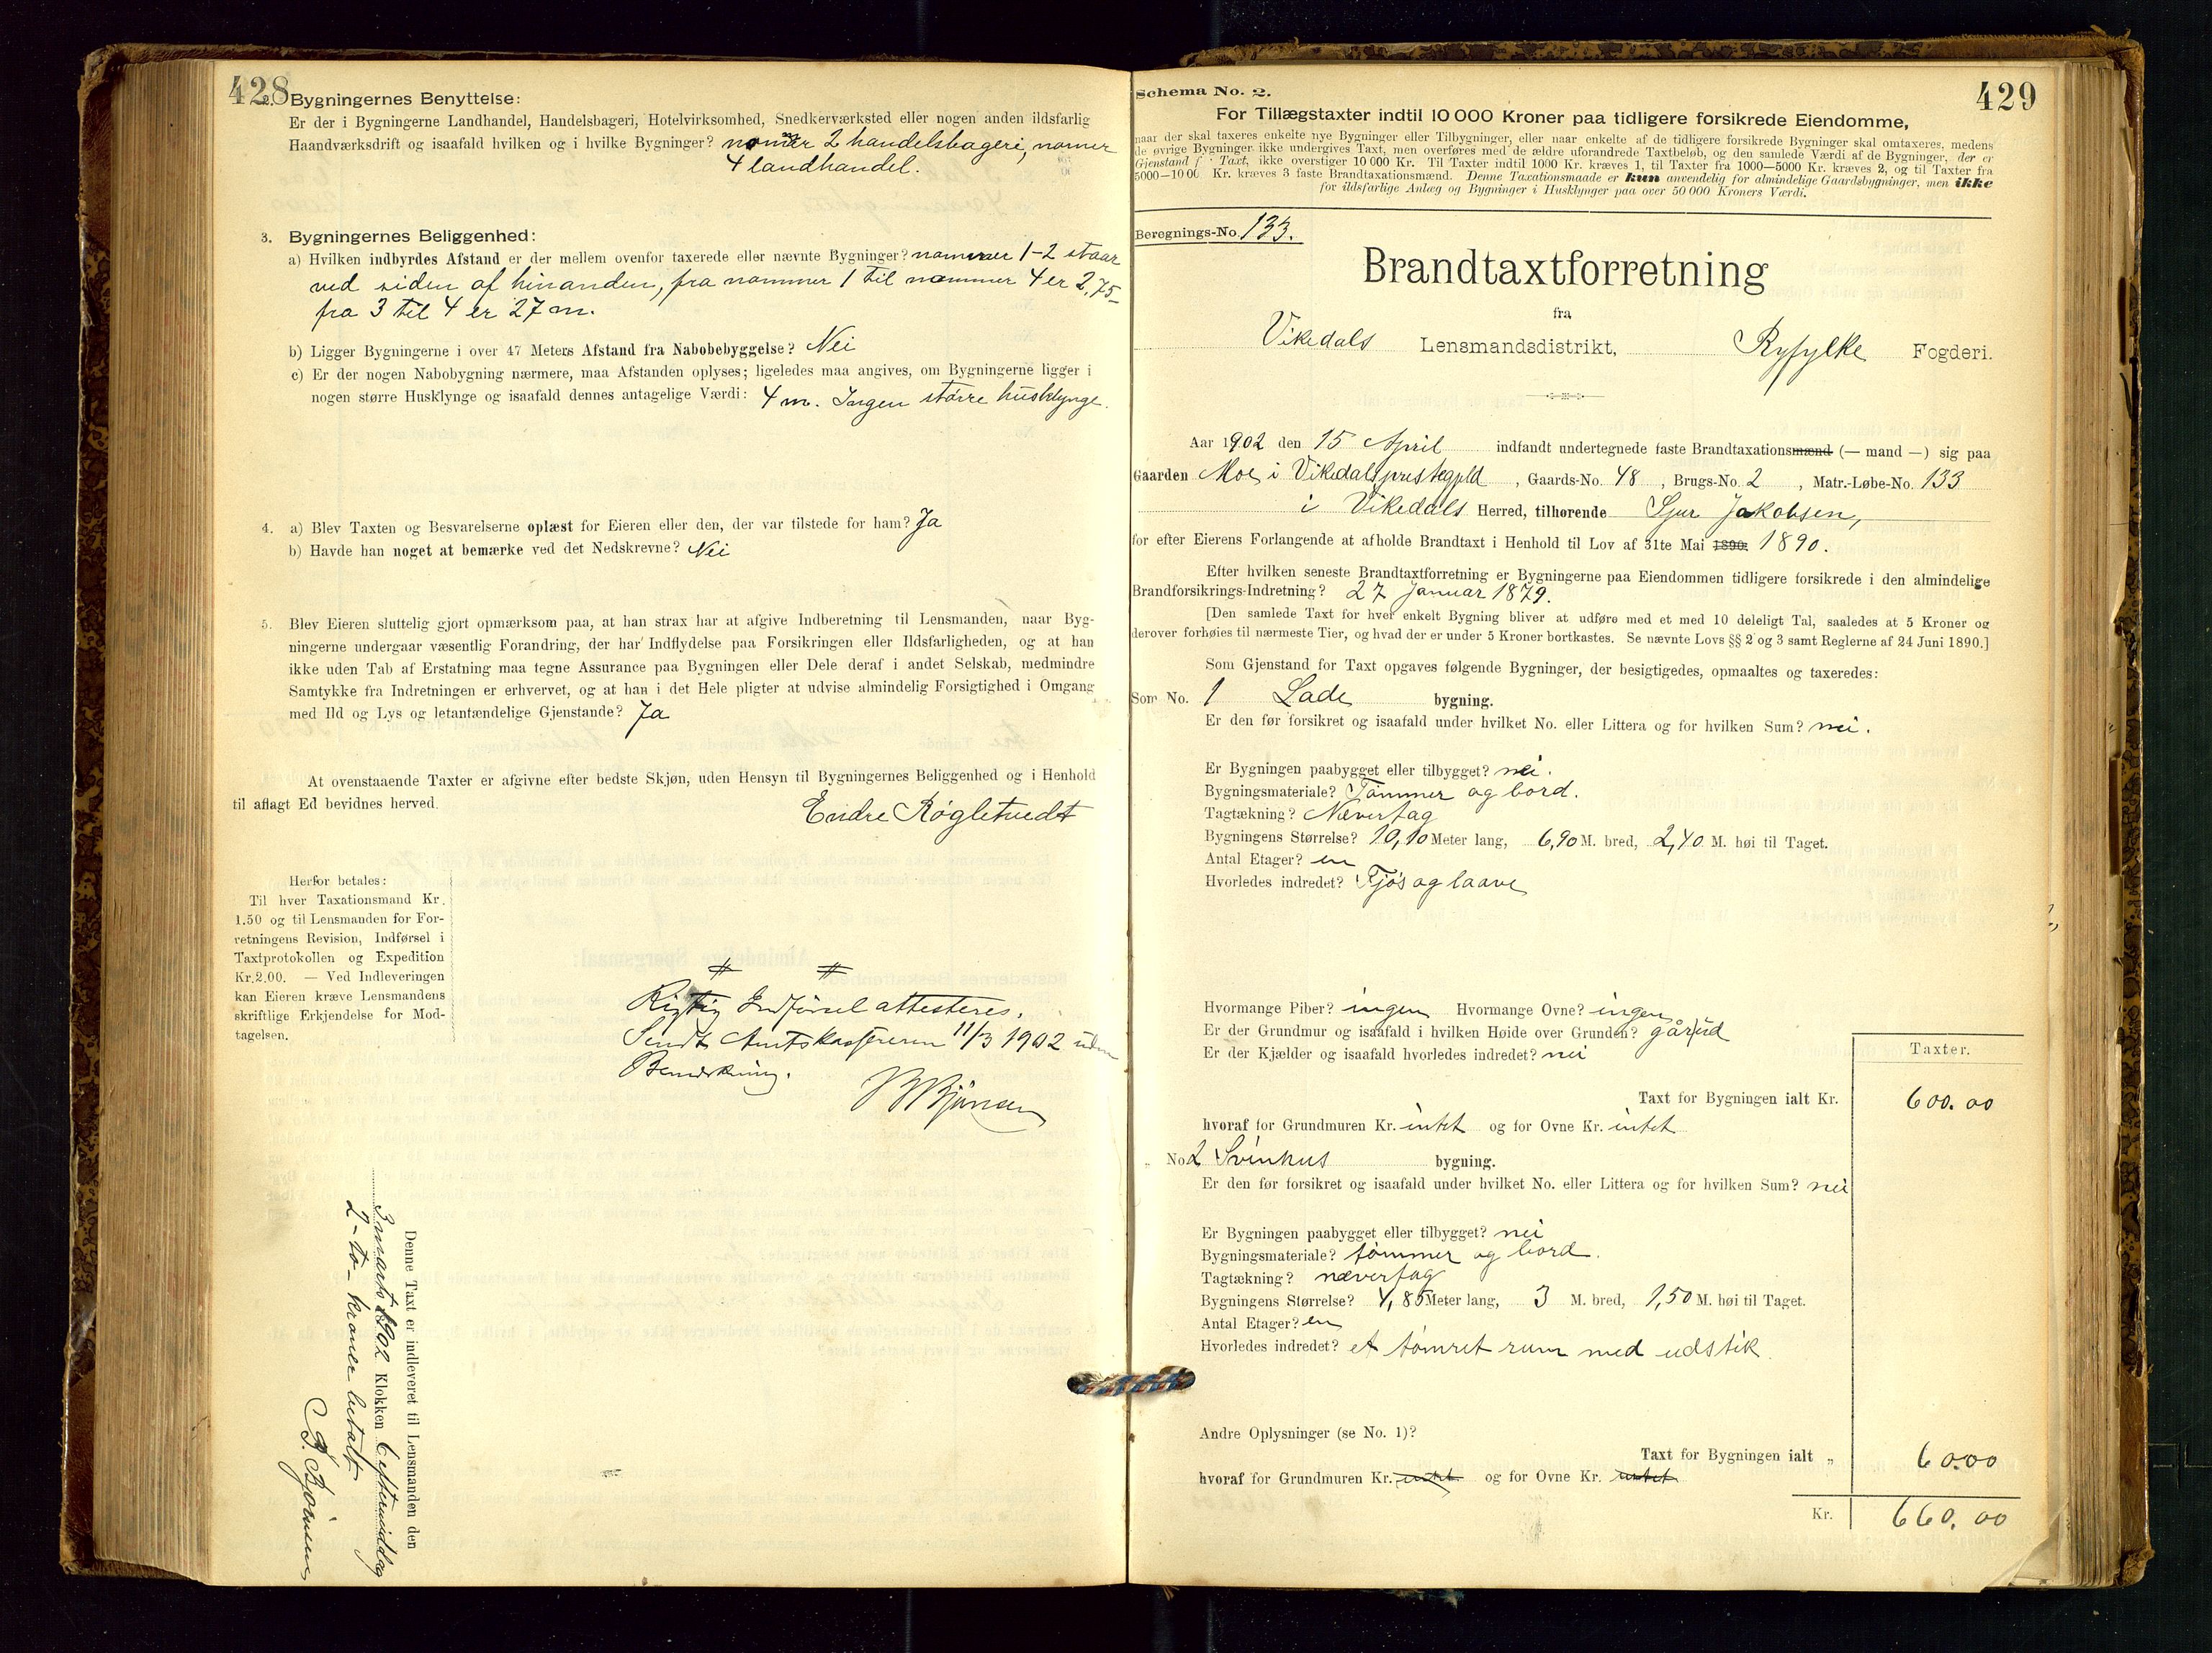 428
2. Bygningernes Benyttelse:
Er der i Bygningerne Landhandel, Handelsbageri, Hotelvirksomhed, Snedkerværksted eller nogen anden ildsfarlig
Haandværksdrift og isaafald hvilken og i hvilke Bygninger? nomer 2 handelsbageri, nomer
4 landhandel.
3. Bygningernes Beliggenhed:
a) Hvilken indbyrdes Afstand er der mellem ovenfor taxerede eller nævnte Bygninger? nommer 1-2 staar
ved siden af hinanden, fra nommer 1 til nommer 4 er 2,75-
fra 3 til 4 er 27 m.
b) Ligger Bygningerne i over 47 Meters Afstand fra Nabobebyggelse? Nei
c) Er der nogen Nabobygning nærmere, maa Afstanden oplyses; ligeledes maa angives, om Bygningerne ligger i
nogen større Husklynge og isaafald dennes antagelige Værdi: 4 m. Ingen større husklynge.
4. a) Blev Taxten og Besvarelserne oplæst for Eieren eller den, der var tilstede for ham? Ja
b) Havde han noget at bemærke ved det Nedskrevne? Nei
5. Blev Eieren sluttelig gjort opmærksom paa, at han strax har at afgive Indberetning til Lensmanden, naar Byg-
ningerne undergaar væsentlig Forandring, der har Indflydelse paa Forsikringen eller Ildsfarligheden, og at han
ikke uden Tab af Erstatning maa tegne Assurance paa Bygningen eller Dele deraf i andet Selskab, medmindre
Samtykke fra Indretningen er erhvervet, og at han i det Hele pligter at udvise almindelig Forsigtighed i Omgang
med Ild og Lys og letantændelige Gjenstande? Ja
At ovenstaaende Taxter er afgivne efter bedste Skjøn, uden Hensyn til Bygningernes Beliggenhed og i Henhold
til aflagt Ed bevidnes herved.
Endre Røgletvedt
Herfor betales:
Til hver Taxationsmand Kr.
1.50 og til Lensmanden for For-
retningens Revision, Indførsel i
Taxtprotokollen og Expedition
Kr. 2.00. — Ved Indleveringen
kan Eieren kræve Lensmandens
skriftlige Erkjendelse for Mod-
tagelsen.
Rigtig Indførsel attesteres.
Sendt Amtskassereren 11/3 1902 uden
Bemærkning.
Denne Taxt er indleveret til Lensmanden den
3 marts 1902 Klokken 6 eftermiddag
2 - to - kroner betalt
B. Bjørnsen
Schema No. 2.
429
For Tillægstaxter indtil 10 000 Kroner paa tidligere forsikrede Eiendomme,
naar der skal taxeres enkelte nye Bygninger eller Tilbygninger, eller naar enkelte af de tidligere forsikrede Bygninger skal omtaxeres, medens
de øvrige Bygninger ikke undergives Taxt, men overføres med de ældre uforandrede Taxtbeløb, og den samlede Værdi af de Bygninger, der er
Gjenstand f Taxt, ikke overstiger 10 000 Kr. Til Taxter indtil 1000 Kr. kræves 1, til Taxter fra 1000—5000 Kr. kræves 2, og til Taxter fra
5000—10 00 Kr. kræves 3 faste Brandtaxationsmænd. Denne Taxationsmaade er kun anvendelig for almindelige Gaardsbygninger, men ikke
for ildsfarlige Anlæg og Bygninger i Husklynger paa over 50 000 Kroners Værdi.
Beregnings-No. 133.
Brandtaxtforretning
fra
Vikedals Lensmandsdistrikt, Ryfylke Fogderi.
Aar 1902 den 15 April indfandt undertegnede faste Brandtaxationsmænd (— mand —) sig paa
Gaarden Moe i Vikedals prestegjeld, Gaards-No. 48, Brugs-No. 2, Matr.-Løbe-No. 133
i Vikedals Herred, tilhørende Sjur Jakobsen,
for efter Eierens Forlangende at afholde Brandtaxt i Henhold til Lov af 31te Mai 1890. 1890.
Efter hvilken seneste Brandtaxtforretning er Bygningerne paa Eiendommen tidligere forsikrede i den almindelige
Brandforsikrings-Indretning? 27 Januar 1879.
[Den samlede Taxt for hver enkelt Bygning bliver at udføre med et med 10 deleligt Tal, saaledes at 5 Kroner og
derover forhøies til nærmeste Tier, og hvad der er under 5 Kroner bortkastes. Se nævnte Lovs §§ 2 og 3 samt Reglerne af 24 Juni 1890.]
Som Gjenstand for Taxt opgaves følgende Bygninger, der besigtigedes, opmaaltes og taxeredes:
Som No. 1 Lade bygning.
Er den før forsikret og isaafald under hvilket No. eller Littera og for hvilken Sum? nei.
Er Bygningen paabygget eller tilbygget? nei.
Bygningsmateriale? Tømmer og bord.
Tagtækning? Nævertag
Bygningens Størrelse? 10,10 Meter lang, 6,90 M. bred, 2,40 M. høi til Taget.
Antal Etager? en
Hvorledes indredet? Fjøs og laave
Hvormange Piber? ingen Hvormange Ovne? ingen
Er der Grundmur og isaafald i hvilken Høide over Grunden? går ud
Er der Kjælder og isaafald hvorledes indredet? nei
Taxter.
Taxt for Bygningen ialt Kr. 600.00
hvoraf for Grundmuren Kr. intet og for Ovne Kr. intet
„ No. 2 Svinhus bygning.
Er den før forsikret og isaafald under hvilket No. eller Littera og for hvilken Sum? nei
Er Bygningen paabygget eller tilbygget? nei
Bygningsmateriale? tømmer og bord.
Tagtækning? nævertag
Bygningens Størrelse? 4,85 Meter lang, 3 M. bred, 1,50 M. høi til Taget.
Antal Etager? en
Hvorledes indredet? et tømret rum med udstik.
Andre Oplysninger (se No. 1)?
Taxt for Bygningen ialt „ 60.00
hvoraf for Grundmuren Kr. intet og for Ovne Kr. intet
Kr. 660.00